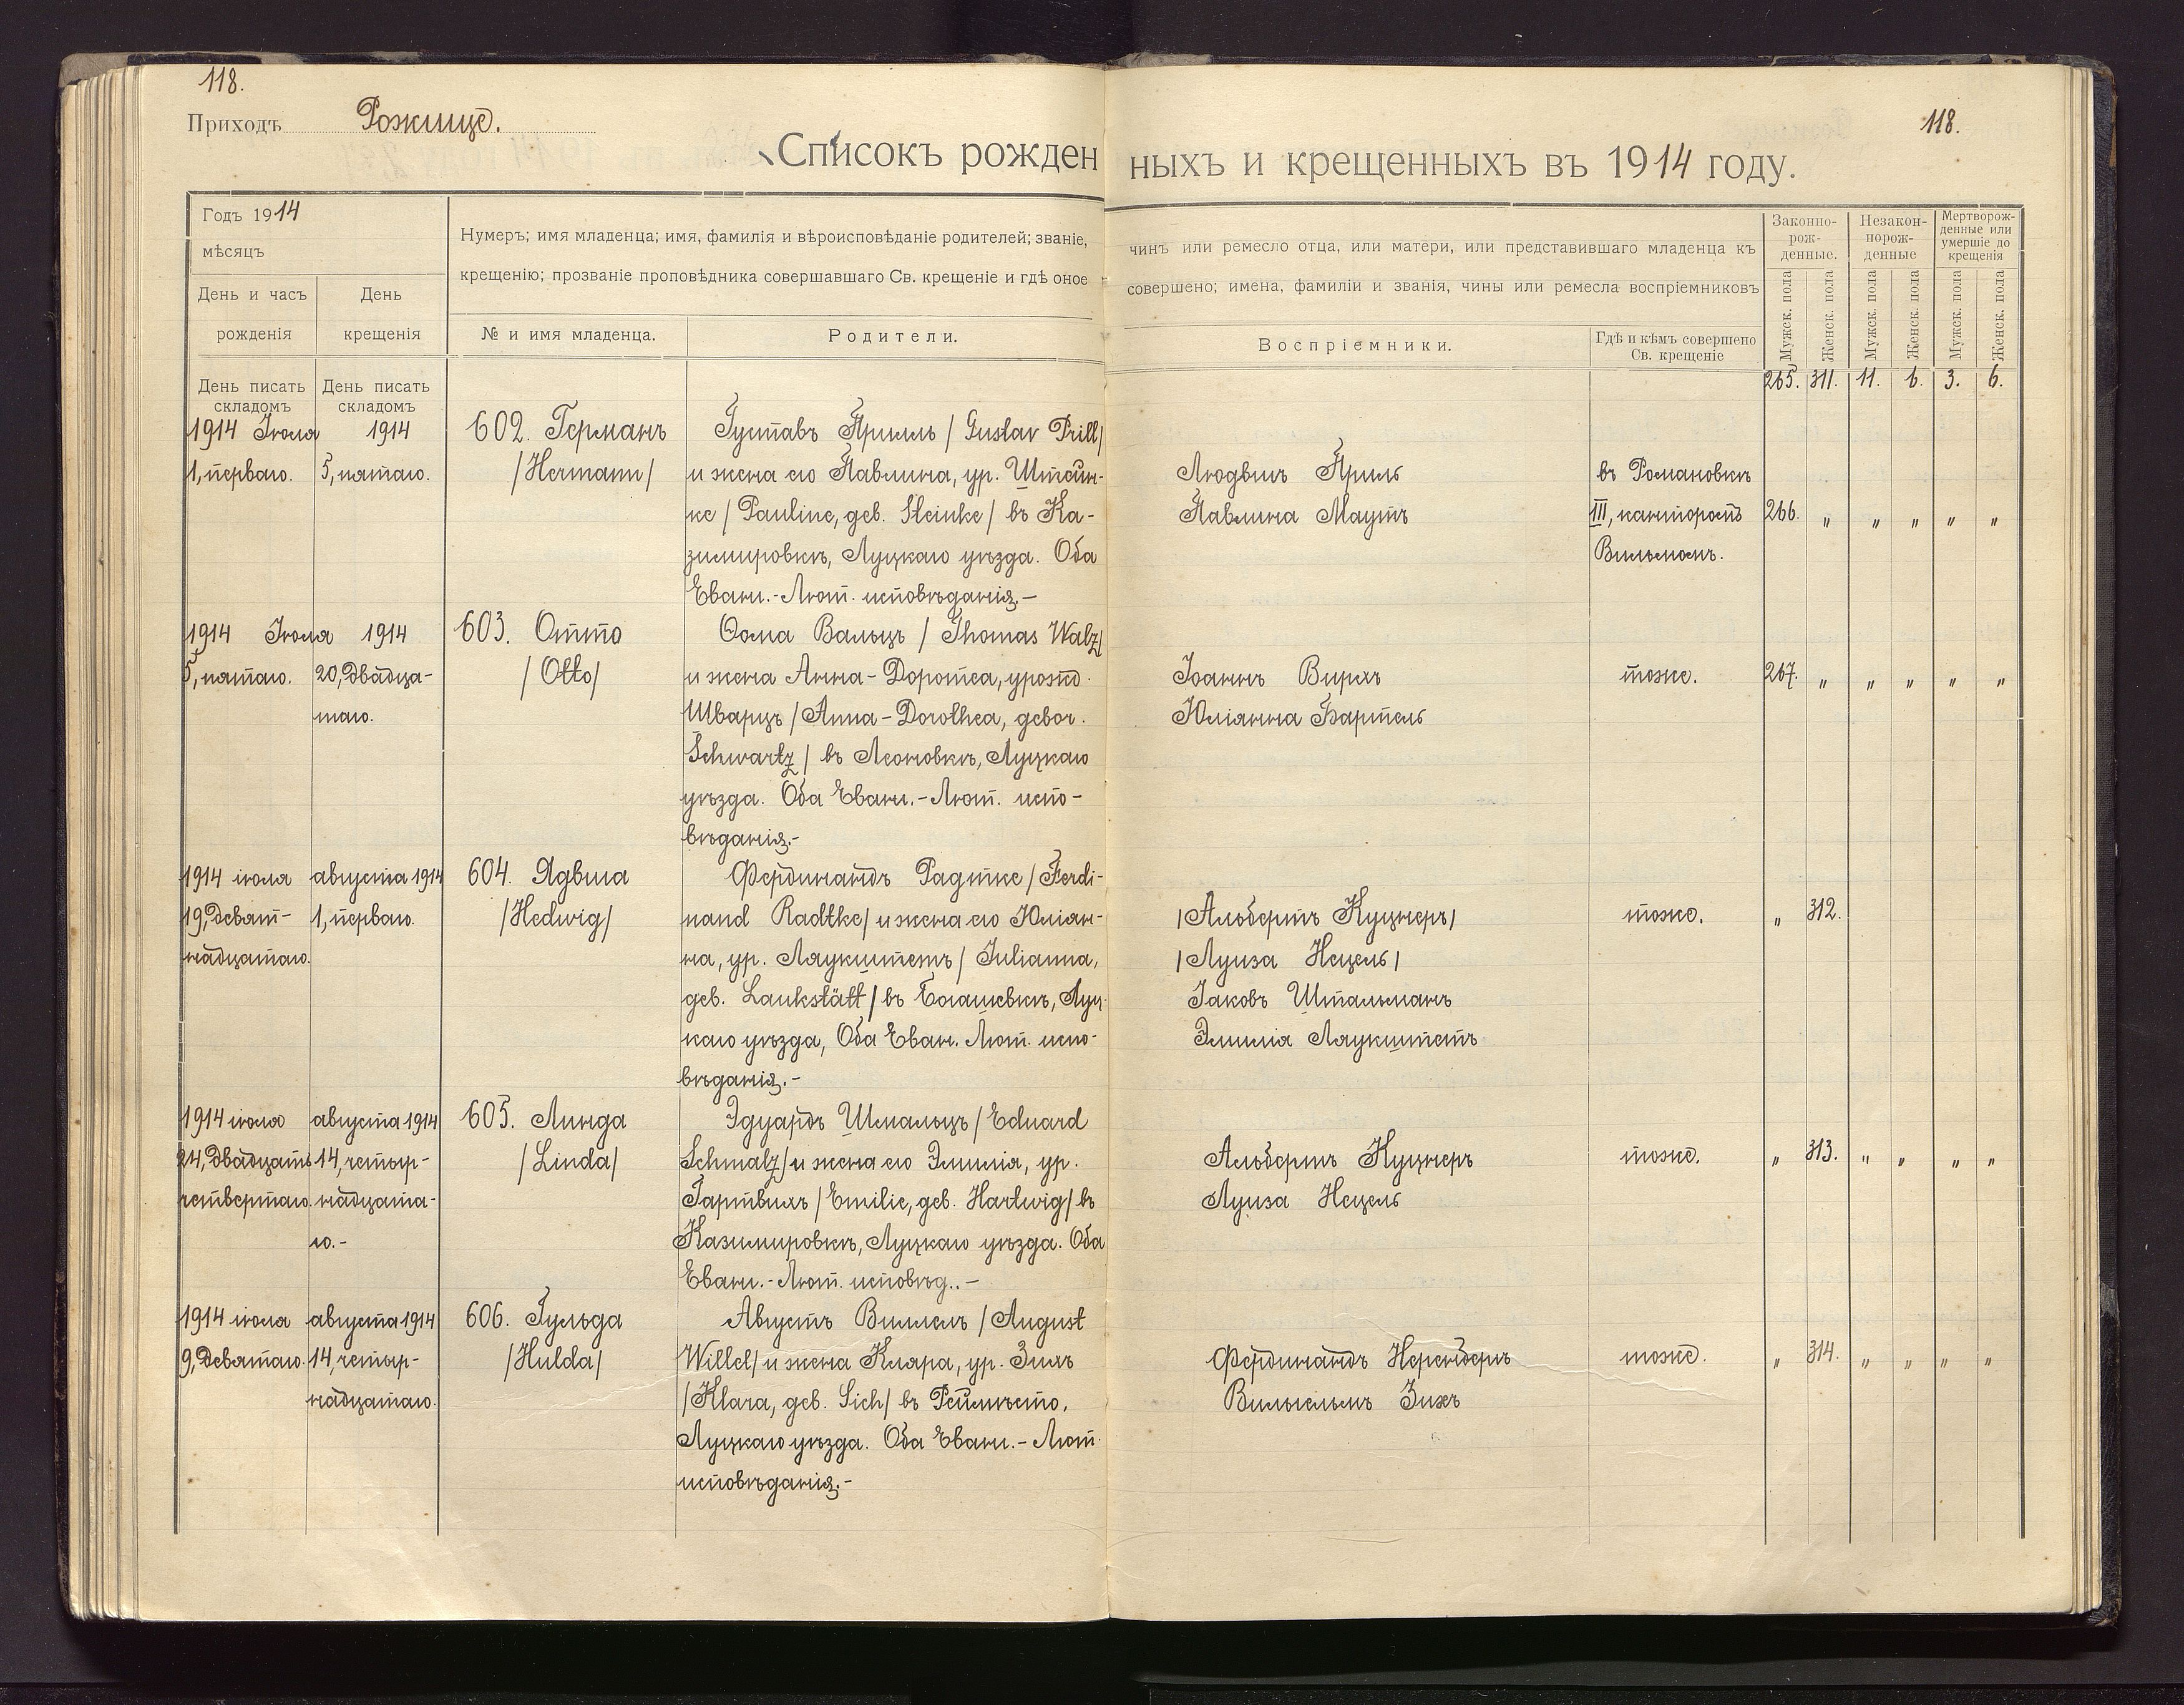 118.
Приходъ Рожище.
118.
Списокъ рожденныхъ и крещенныхъ въ 1914 году.
Годъ 1914
мѣсяцъ
День и часъ
рожденія
День
крещенія
Нумеръ; имя младенца; имя, фамилія и вѣроисповѣданіе родителей; званіе, чинъ или ремесло отца, или матери, или представившаго младенца къ
крещенію; прозваніе проповѣдника совершавшаго Св. крещеніе и гдѣ оное совершено; имена, фамиліи и званія, чины или ремесла воспріемниковъ
№ и имя младенца.
Родители.
Воспріемники.
Гдѣ и кѣмъ совершено
Св. крещеніе
Законно-
рож-
денные.
Незакон-
норож-
денные
Мертворож-
денные или
умершіе до
крещенія
Мужск. пола
Женск. пола
Мужск. пола
Женск. пола
Мужск. пола
Женск. пола
День писать
складомъ
День писать
складомъ
265. 311. 11. 6. 3. 6.
1914 Іюля
1, перваго.
1914
5, пятаго.
602. Германъ
/Hermann/
Густавъ Прилль / Gustav Prill/
и жена его Павлина, ур. Штейн-
ке / Pauline, geb. Steinke / въ Ка-
зимировкѣ, Луцкаго уѣзда. Оба
Еванг.-Лют. исповѣданія.-
Людвигъ Приль
Павлина Маутъ
въ Романовкѣ
III, канторомъ
Вильмомъ.
266. " " " " "
1914 Іюля
5, пятаго.
1914
20, двадца-
таго.
603. Отто
/ Otto/
Ѳома Вальцъ / Thomas Walz/
и жена Анна-Доротеа, урожд.
Шварцъ / Anna-Dorothea, gebor.
Schwartz / въ Леоновкѣ, Луцкаго
уѣзда. Оба Еванг.-Лют. испо-
вѣданія.-
Іоаннъ Вирхъ
Юліянна Бартель
тоже.
267. " " " " "
1914 іюля
19, девят-
надцатаго.
августа 1914
1, перваго.
604. Ядвига
/Hedwig/
Фердинандъ Радтке / Ferdi-
nand Radtke/ и жена его Юліян-
на, ур. Лаукштетъ / Julianna,
geb. Laukstätt / въ Богашевкѣ, Луц-
каго уѣзда, Оба Еван. Лют. испо-
вѣданія.-
/Альбертъ Куцнеръ/
/Луиза Нецель/
Іаковъ Штальманъ
Эмилія Лаукштетъ
тоже.
" 312.
1914 іюля
24, двадцать
четвертаго.
августа 1914
14, четыр-
надцата-
го.-
605. Линда
/Linda/
Эдуардъ Шмальцъ / Eduard
Schmalz/ и жена его Эмилія, ур.
Гартвихъ / Emilie, geb. Hartwig/ въ
Казимировкѣ, Луцкаго уѣзда. Оба
Еванг.-Лют. исповѣд..-
Альбертъ Куцнеръ
Луиза Нецель
тоже.
" 313. " " " "
1914 іюля
9, девятаго.
августа 1914
14, четыр-
надцатаго.
606. Гульда
/Hulda/
Августъ Виллель / August
Willel/ и жена Клара, ур. Зихъ
/Klara, geb. Sich/ въ
Луцкаго уѣзда. Оба Еванг.-Лют.
исповѣданія.-
Фердинандъ Неренбергъ
Вильгельмъ Зихъ
тоже.
" 314. " " " "